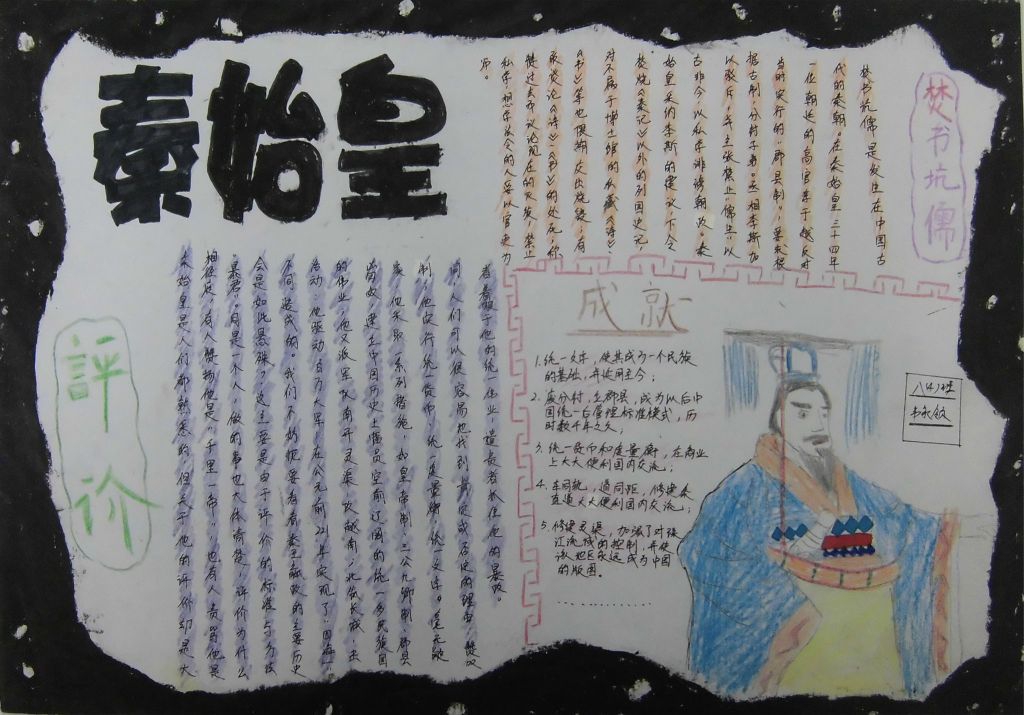 秦始皇
焚书坑儒
焚书坑儒，是发生在中国古
代的秦朝。在秦始皇三十四年
一位朝廷的高官淳于越反对
当时实行的"郡县制"，要求根
据古制，分封子弟。丞相李斯加
以驳斥，并主张禁止"儒生"以
古非今，以私学诽谤朝政。秦
始皇采纳李斯的建议，下令
焚烧《秦记》以外的列国史记
对不属于博士馆的私藏《诗》、
《书》等也限期交出烧毁；有
敢谈论《诗》《书》的处死，称
赞过去而议论现在的灭族；禁止
私学，想学法令的人要以官吏为
师。
評价
秦始皇是人们都熟悉的，但关于他的评价却是大
相径庭，有人赞扬他是"千里一帝"，也有人责骂他是
"暴君"。同是一个人，做的事也大体清楚，评价为什么
会是如此悬殊？这主要是由于评价的标准与方法
不同造成的。我们不妨扼要看看秦王嬴政的主要历史
活动：他驱动百万大军，在公元前221年实现了
的伟业，他又派军队南开灵渠，攻越南，北筑长城，击
匈奴，建立中国历史上幅员空前辽阔的统一多民族国
家，他采取一系列措施，如皇帝制、三公九卿制、郡县
制，他实行统一货币，统一度量衡，统一文字。毫无疑
问，人们可以很容易地找到肯定或否定的理由，赞叹
者着重于他的统一伟业，谴责者抓住他的暴政。
成就
1.统一文字，使其成为一个民族
的基础，并使用至今；
2.废分封，立郡县，成为以后中
国统一后管理标准模式，历
时数千年之久；
3.统一货币和度量衡，在商业
上大大便利国内交流；
4.车同轨，道同距，修建秦
直道大大便利国内交流；
5.修建灵渠，加强了对珠
江流域的控制，并使
该地区永远成为中国
的版图。
…………
八(4)班